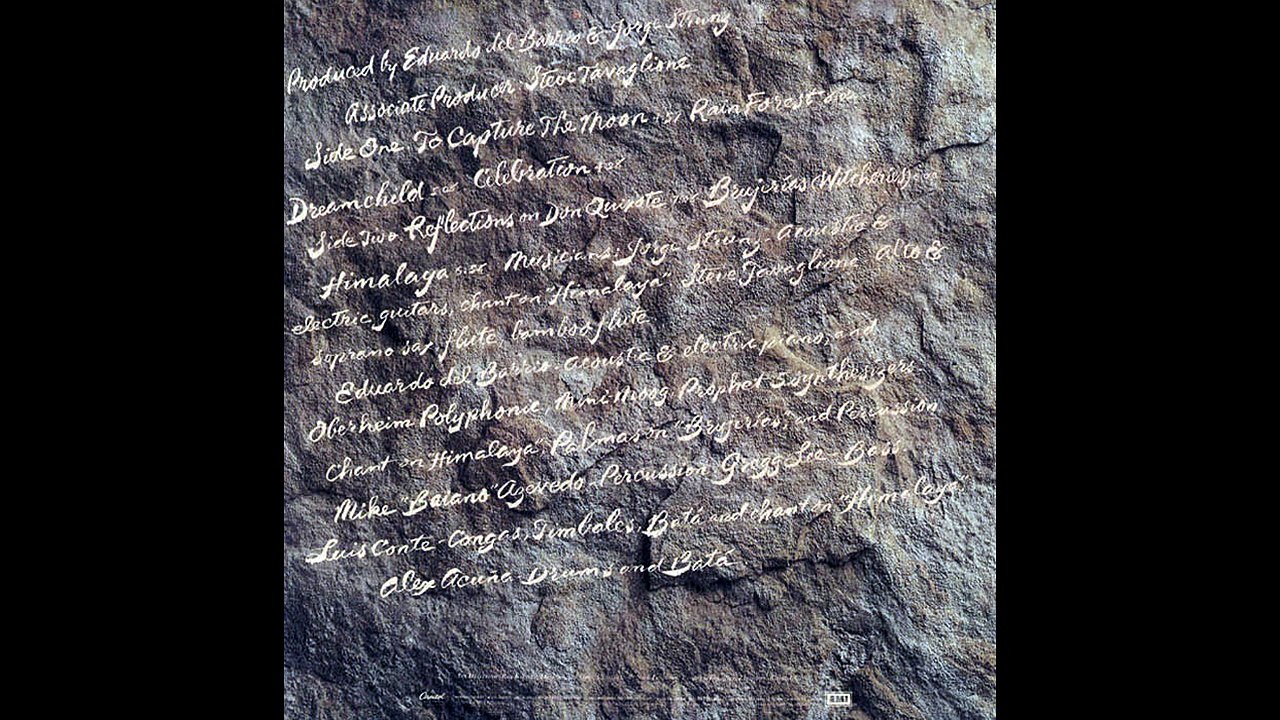 Produced by Eduardo del Barrio & Jorge Strunz
Associate Producer Steve Tavaglione
Side One To Capture The Moon Rain Forest
Dreamchild Celebration
Side Two: Reflections on Don Quixote Brujerías (Witcheries)
Himalaya Musicians: Jorge Strunz - acoustic &
electric guitars, chant on "Himalaya" Steve Tavaglione alto &
soprano sax, flute, bamboo flute
Eduardo del Barrio - acoustic & electric pianos, and
Oberheim Polyphonic, Mini Moog, Prophet 5 synthesizers
Chant on "Himalaya". Palmas on "Brujerías," and Percussion
Mike "Baiano" Azevedo - Percussion Gregg Lee - Bass
Luis Conte - Congas, Timbales, Batá and chant on "Himalaya"
Alex Acuña - Drums and Batá
Capitol
EMI